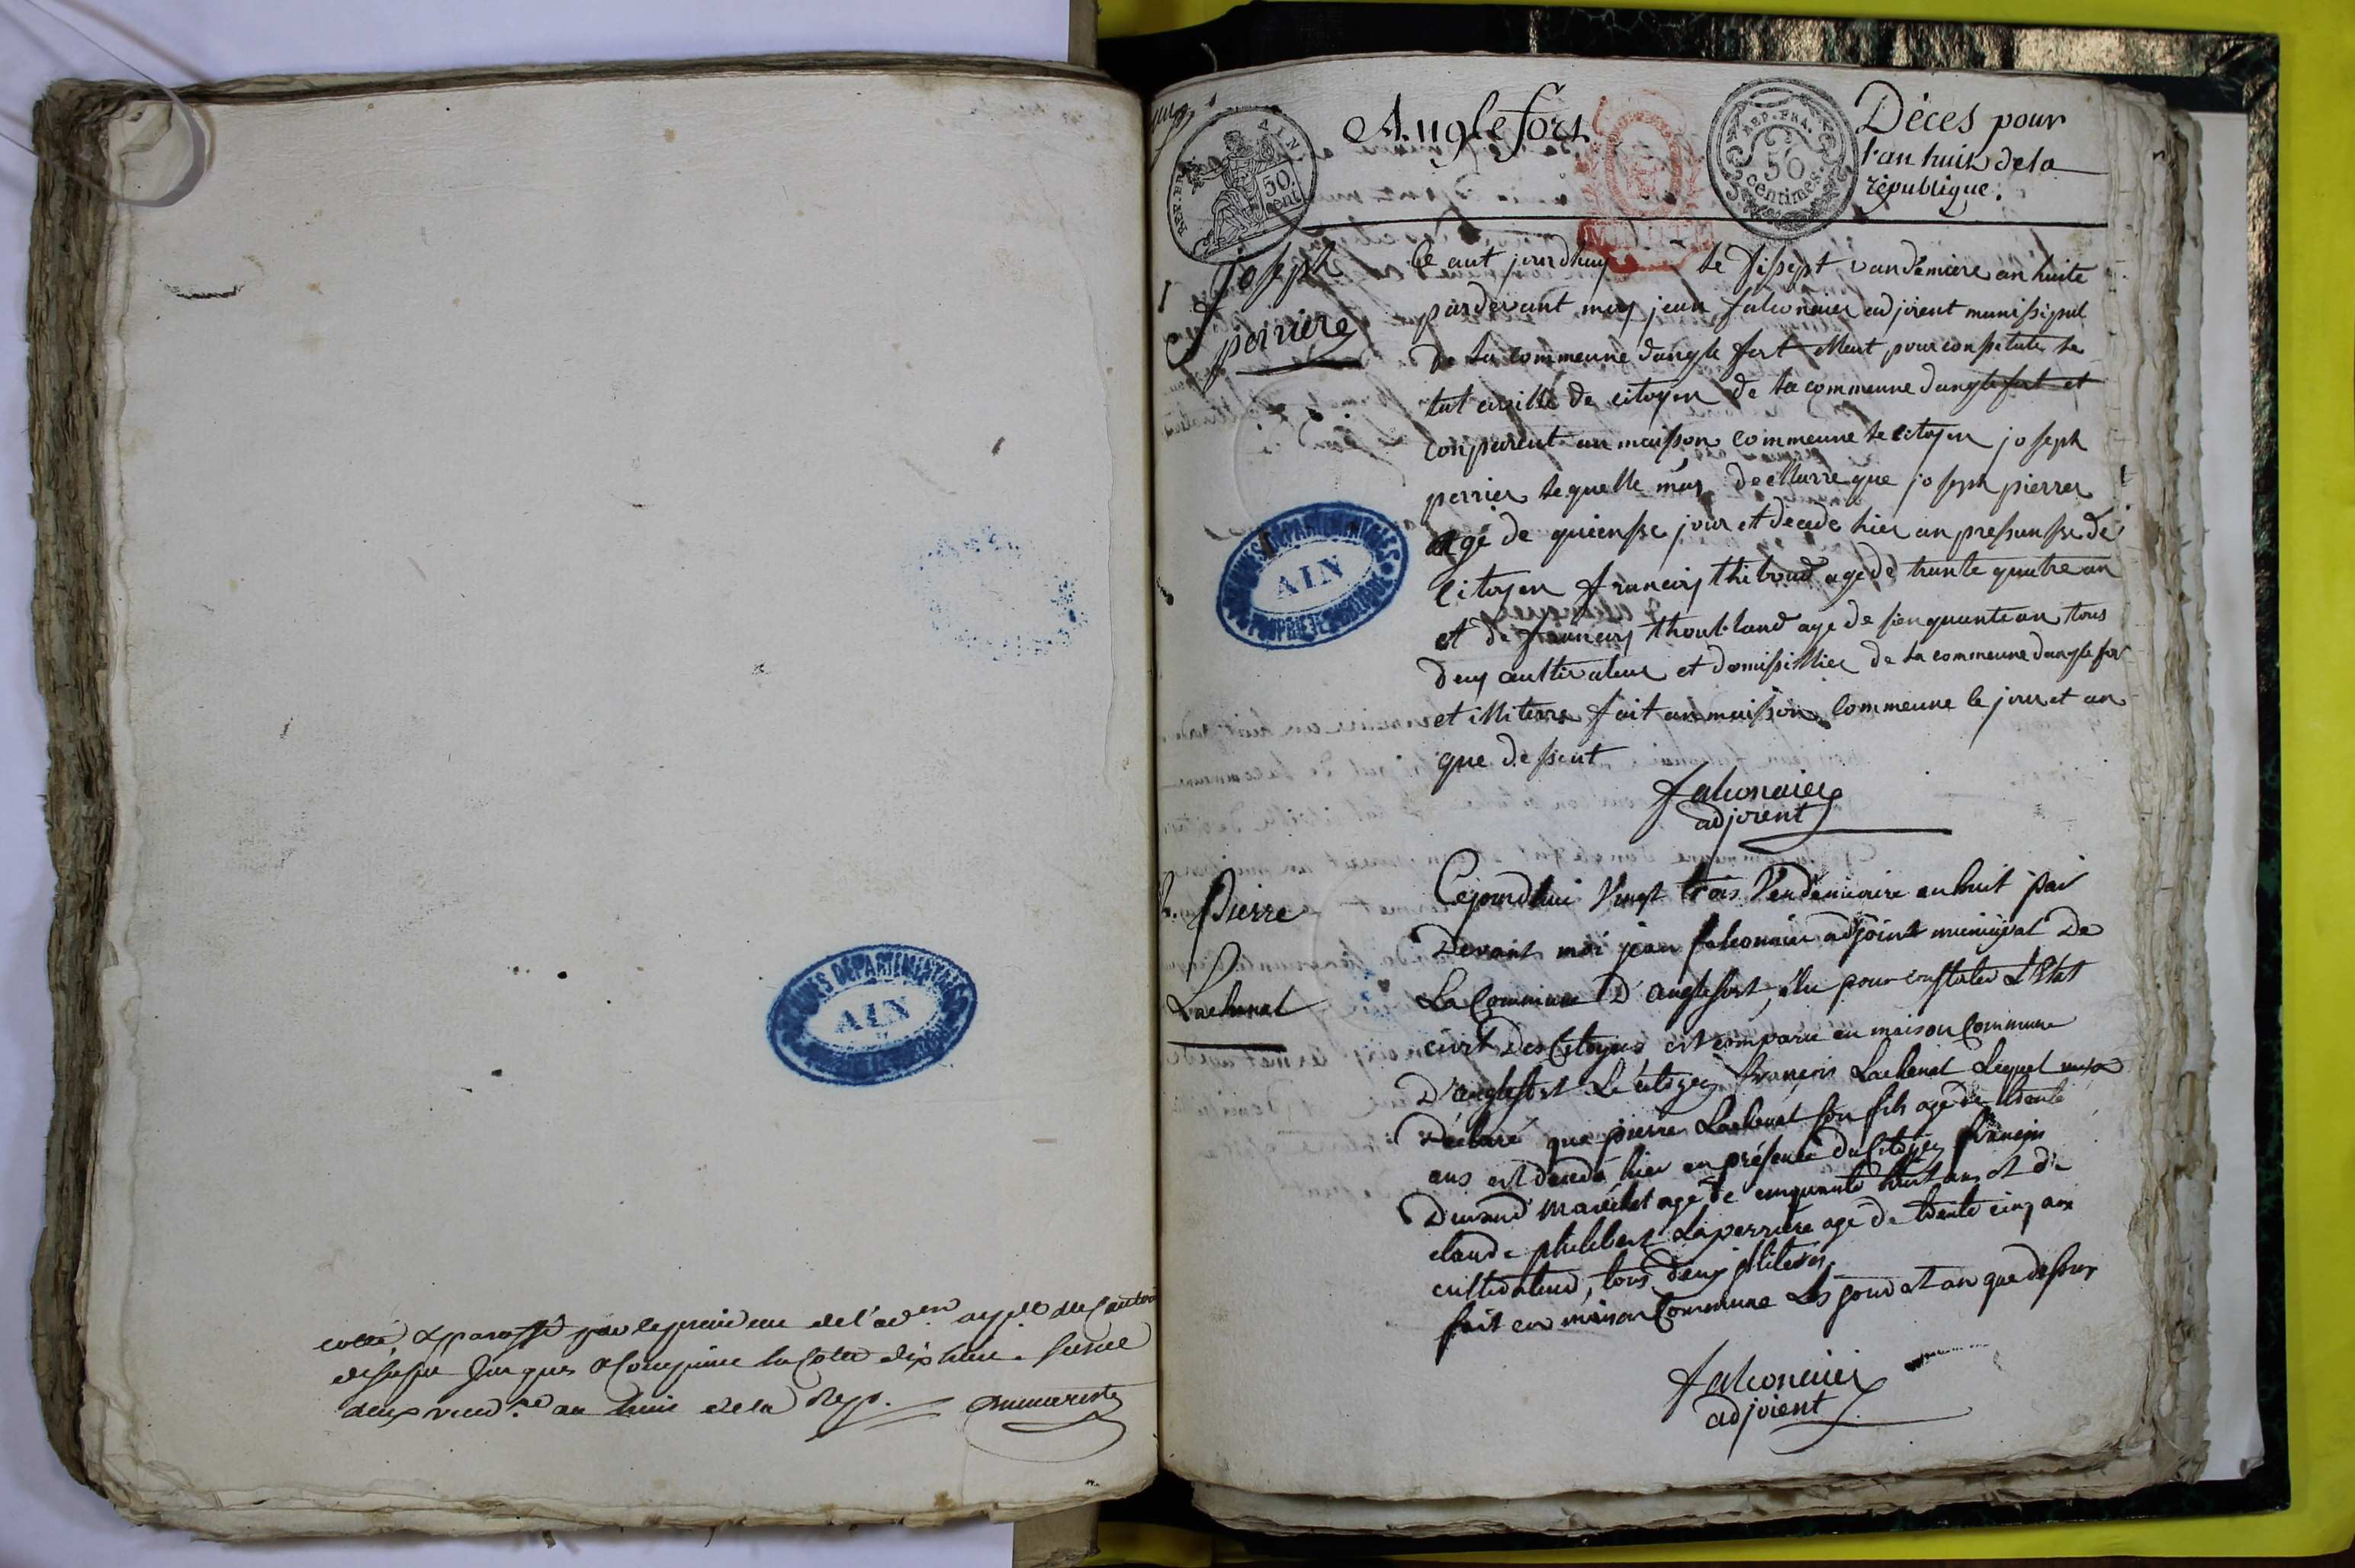 cotté & paraffé par le president de l'ad.on du Canton
deux vend.re an huit de la Rep.
Anglefort
Déces pour
l'an huit de la
république.
REP. FRA. AIN
50 cent
REP. FRA.
56
centimes
1 joseph
perriere
Ce aut jourdhuy le disept vandemiere an huite
pardevant moy jean falconnier adjoient munissipal
de la commeune danglefort elleut pour constatute le
tat cuville de citoyen de la commeune danglefort et
conparent an maisson commeune le citoyen joseph
perrier lequelle may decllarre que joseph pierrer
age de quiensse jour et decede hier an pressansse de
citoyen francois thiboud age de trante quatre an
et de francois age de sienquante an tous
deux cultivateur et domissillier de la commeune danglefor
et illiterre fait an maisson commeune le jour et an
que dessut
falconnier
adjoient
2. Pierre
Lachenal
Cejourdhui Vingt trois Vendemiaire an huit par
Devant moi jean falconnier adjoint municipal De
La Commune D'anglefort, élu pour constater L'Etat
civil Des Citoyens est comparu en maison Commune
D'anglefort Le citoyen françois Lachenal Lequel m'a
Declaré que pierre Lachenal son fils agé de trente
ans est decedé hier en présence du Citoyen françois
Durand Maréchal agé de cinquante huit ans et de
claude philibert Laperriere agé de trente cinq ans
cultivateur, tous deux illiterés,
fait en maison Commune Les jour et an que dessus
falconnier
adjoient
ARCHIVES DEPARTEMENTALES
AIN
PROPRIETE PUBLIQUE
ARCHIVES DEPARTEMENTALES
AIN